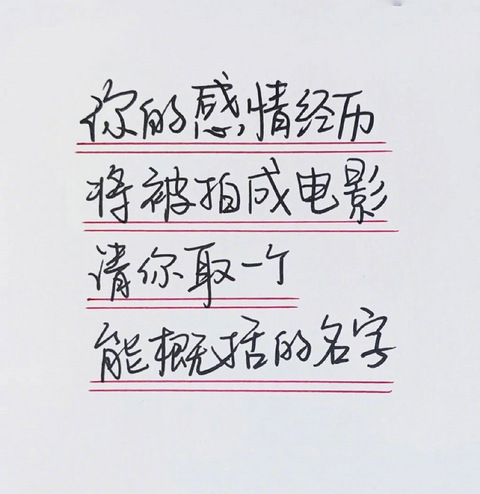 你的感情经历
将被拍成电影
请你取一个
能概括的名字